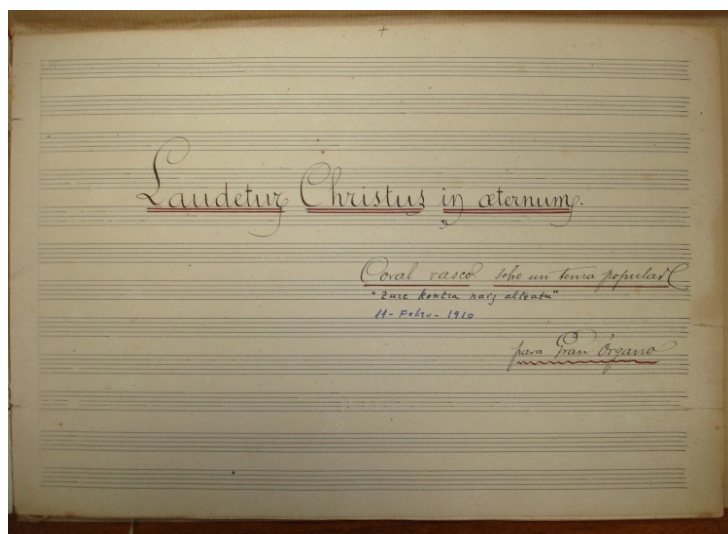 Laudetur Christus in æternum.
Coral vasco sobre un tema popular
"Zure kontra naiz altxatu"
11-Febro-1910
para Gran Órgano